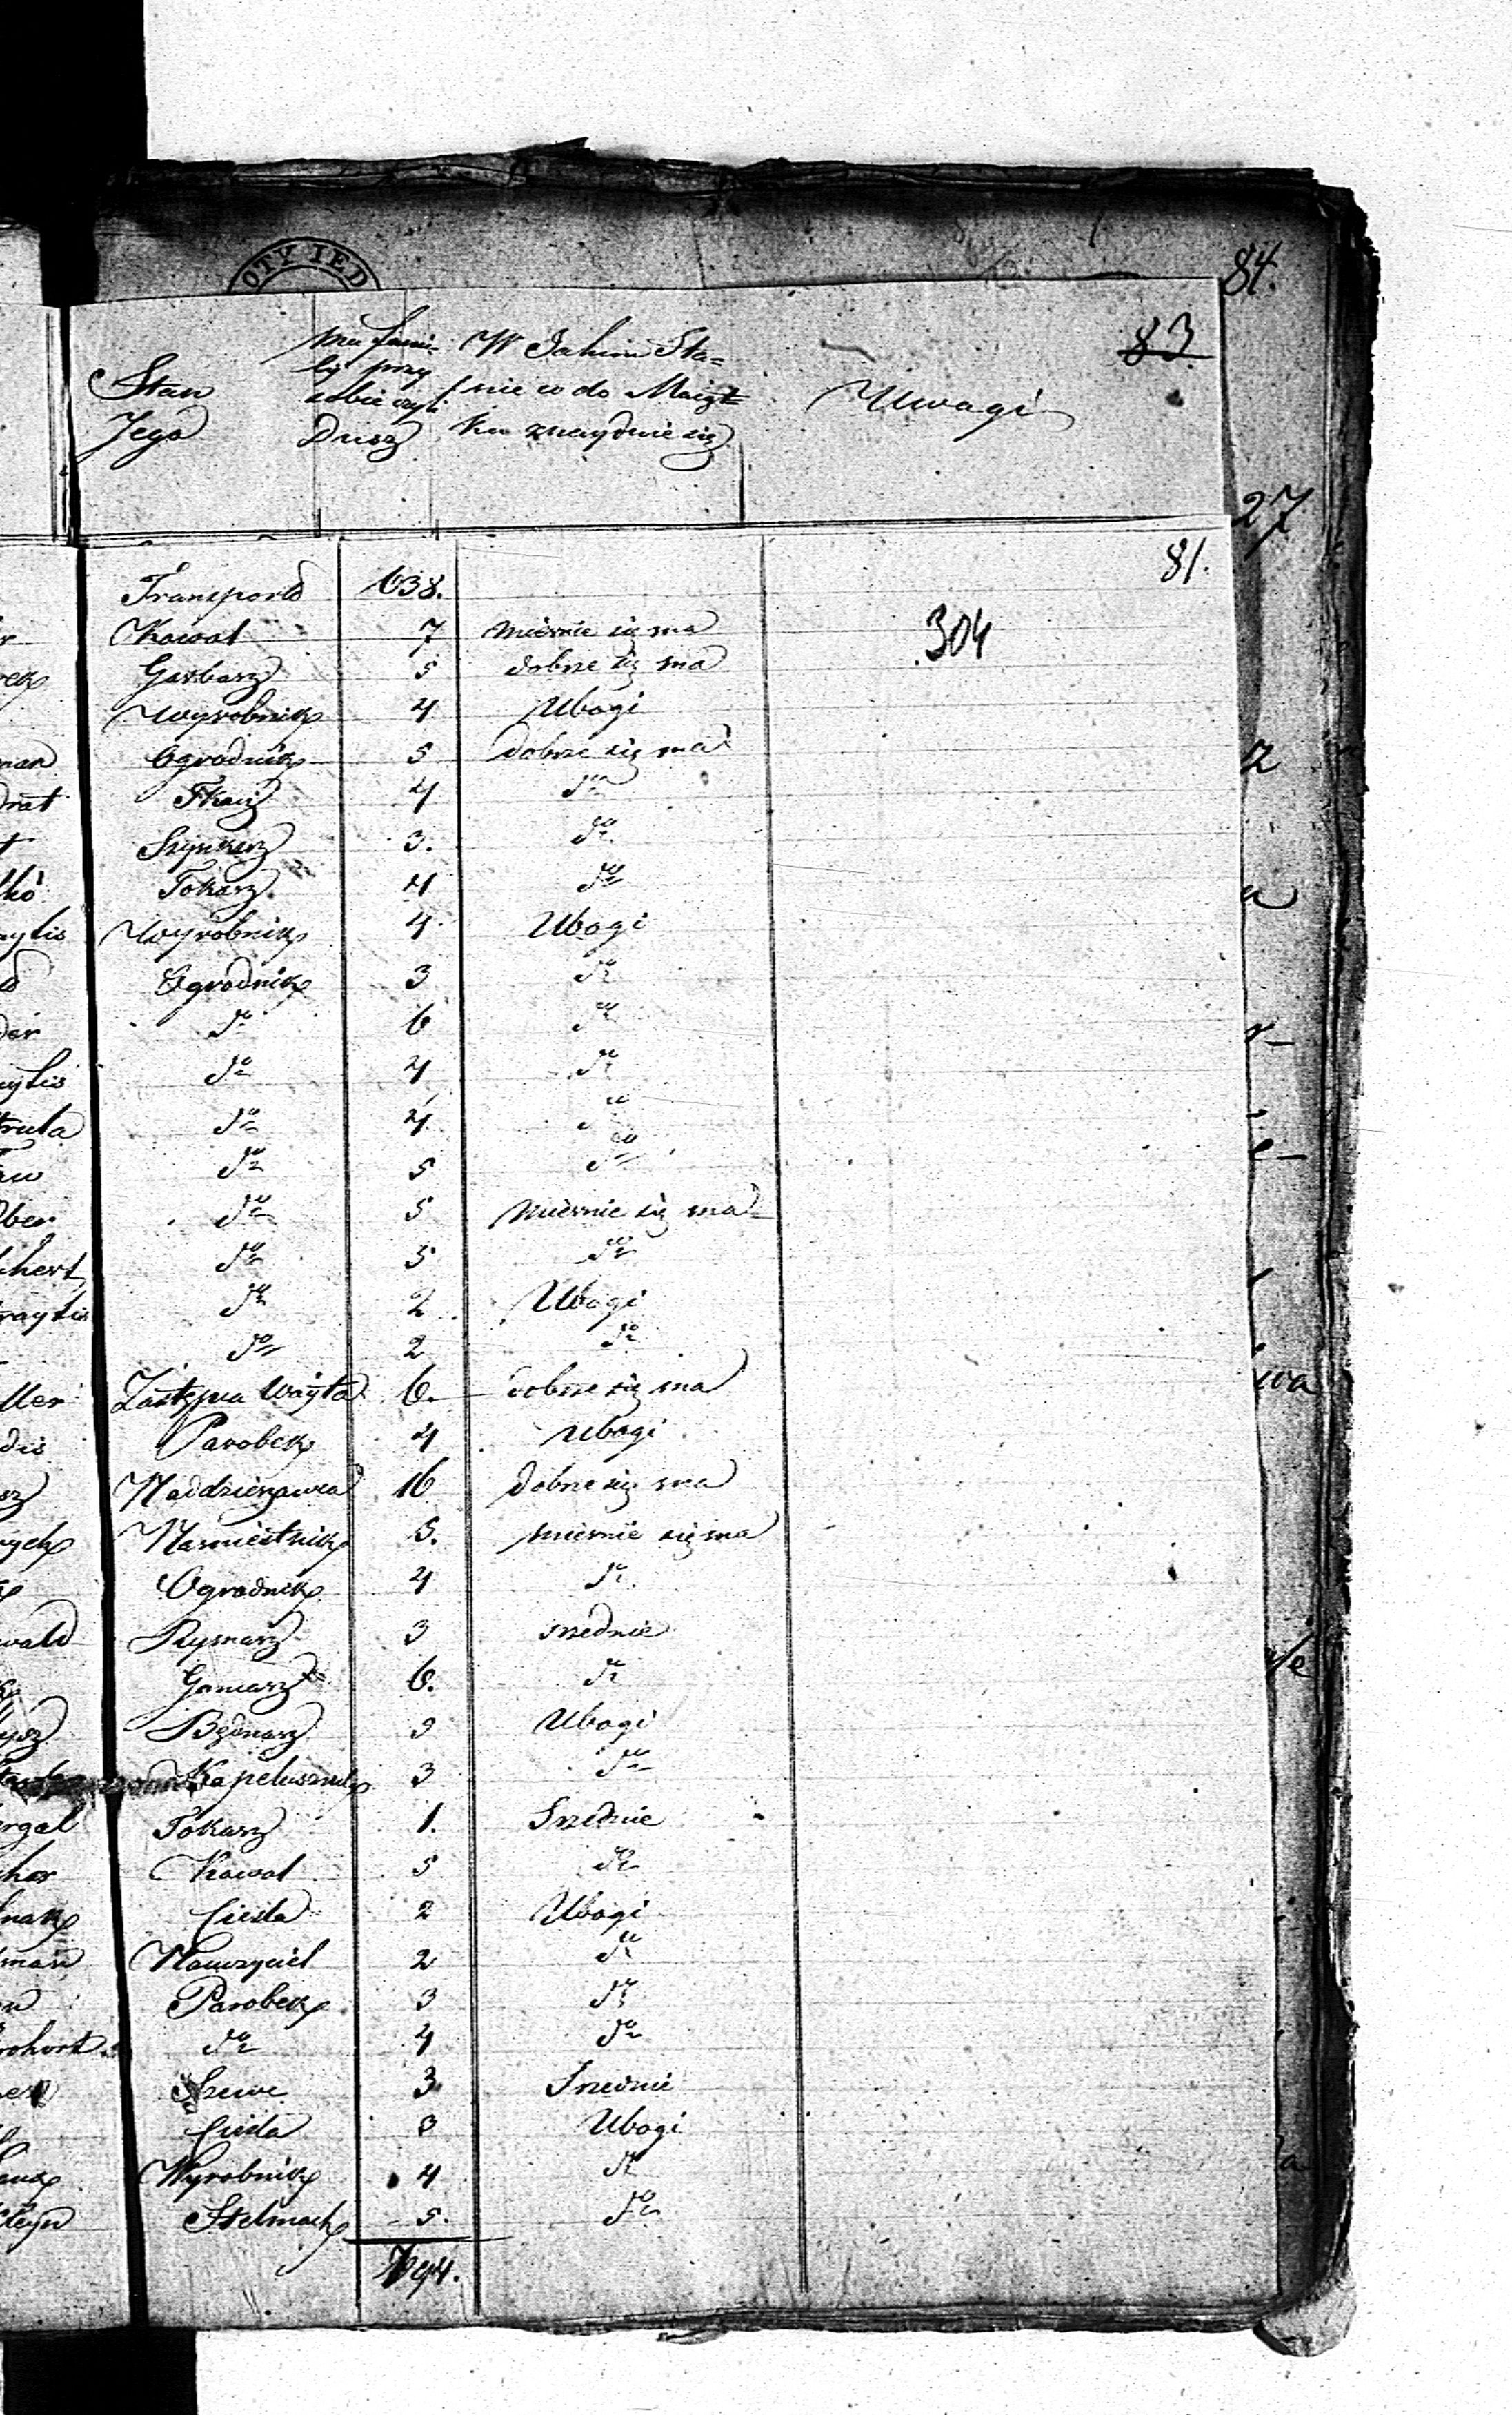 OTY IED
84.
83
Stan Jego
ma fami-
ly przy
sobie czyli
Dusz
W Jakim Sta=
nie co do Maiąt=
ku znayduie się
Uwagi
27
81.
304
Transport 638.
Kowal 7 miernie się ma
Garbarz 5 dobrze się ma
Wyrobnik 4 Ubogi
Ogrodnik 5 dobrze się ma
Tkacz 4 do
Szynkarz 3. do
Tokarz 4 do
Wyrobnik 4. Ubogi
Ogrodnik 3 do
do 6 do
do 4 do
do 4 do
do 5 do
do 5 miernie się ma
do 5 do
do 2 Ubogi
do 2 do
Zastępca Woyta 6. dobrze się ma
Parobek 4 Ubogi
Naddzierzawca 16 dobrze się ma
Namiestnik 5. miernie się ma
Ogrodnik 4 do
Rymarz 3 srzednie
Garnarz 6. do
Bednarz 3 Ubogi
Kapelusznik 3 do
Tokarz 1. Srzednie
Kowal 5 do
Ciesla 2 Ubogi
Nauczyciel 2 do
Parobek 3 do
do 4 do
Szewc 3 Srzednie
Ciesla 3 Ubogi
Wyrobnik 4 do
Stelmach 5. do
794.